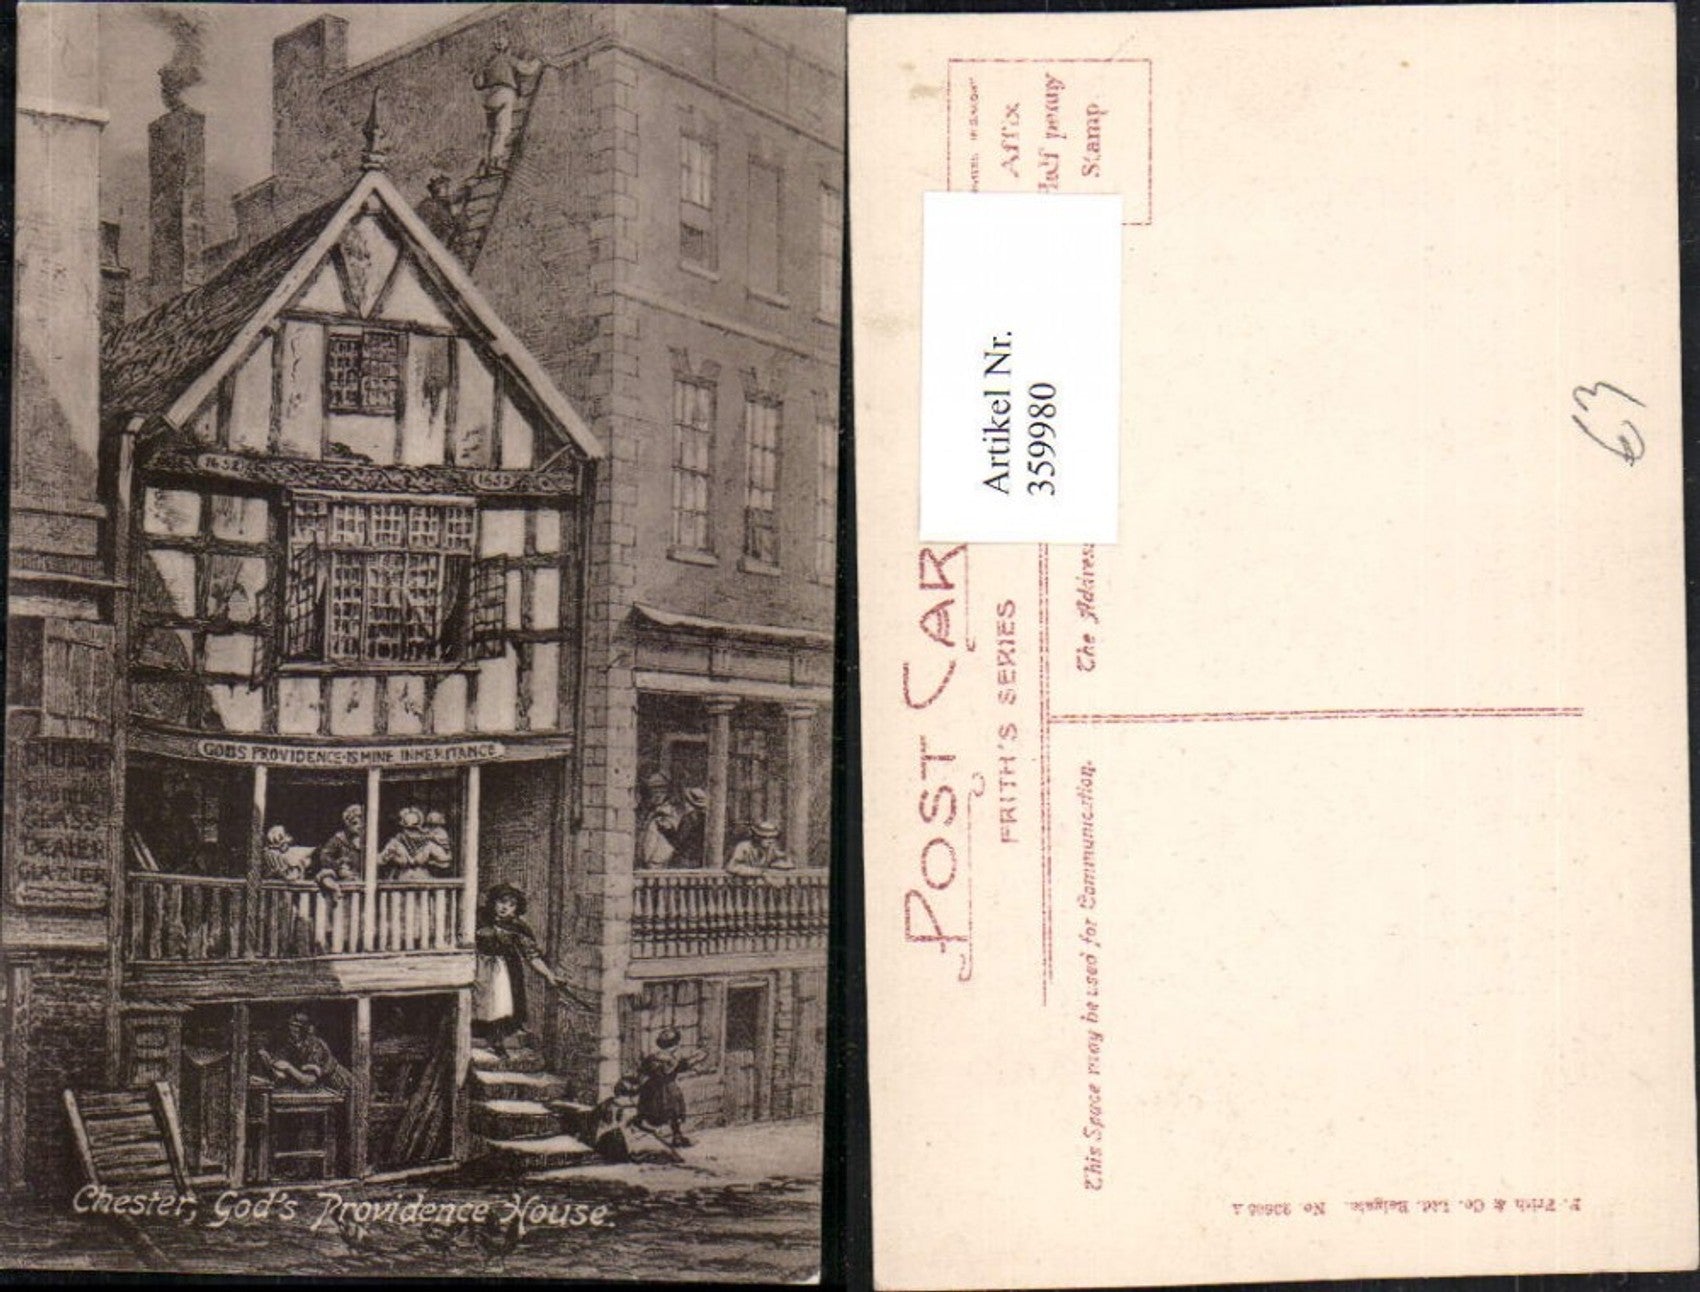 1652
1652
GODS PROVIDENCE·IS MINE INHERITANCE
GLASS
DEALER
GLAZIER
Chester, God's Providence House.
Affix
Half penny
Stamp
Artikel Nr.
359980
POST CAR
FRITH'S SERIES
This Space may be used for Communication.
The Address
63
F. Frith & Co. Ltd. Reigate. No